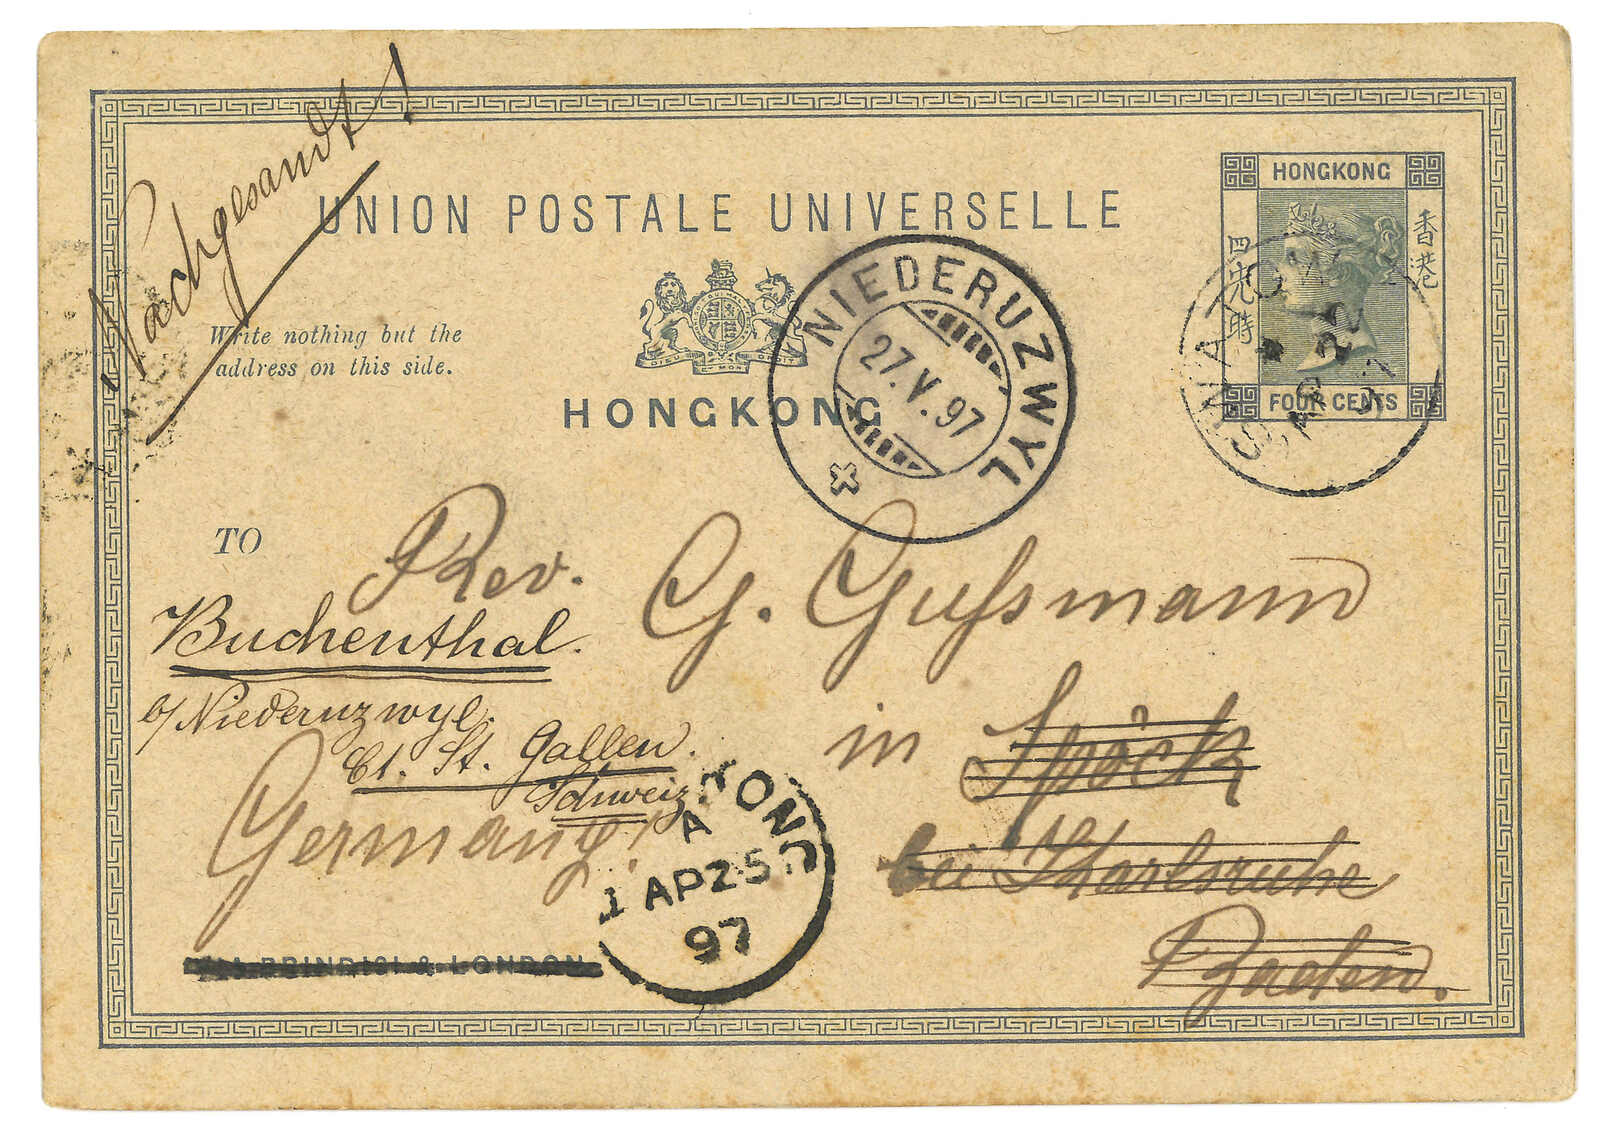 Nachgesandt!
UNION POSTALE UNIVERSELLE
HONGKONG
香港
四先時
FOUR CENTS
Write nothing but the
address on this side.
DIEU ET MON DROIT
HONGKONG
NIEDERUZWYL
27.V.97
SWATOW
AP 22
97
TO
Rev. G. Gussmann
Buchenthal.
b/Niederuzwyl.
Ct. St. Gallen.
Schweiz
in Spöck
Germany!
bei Karlsruhe
Baden.
A
AP 25
97
VIA BRINDISI & LONDON